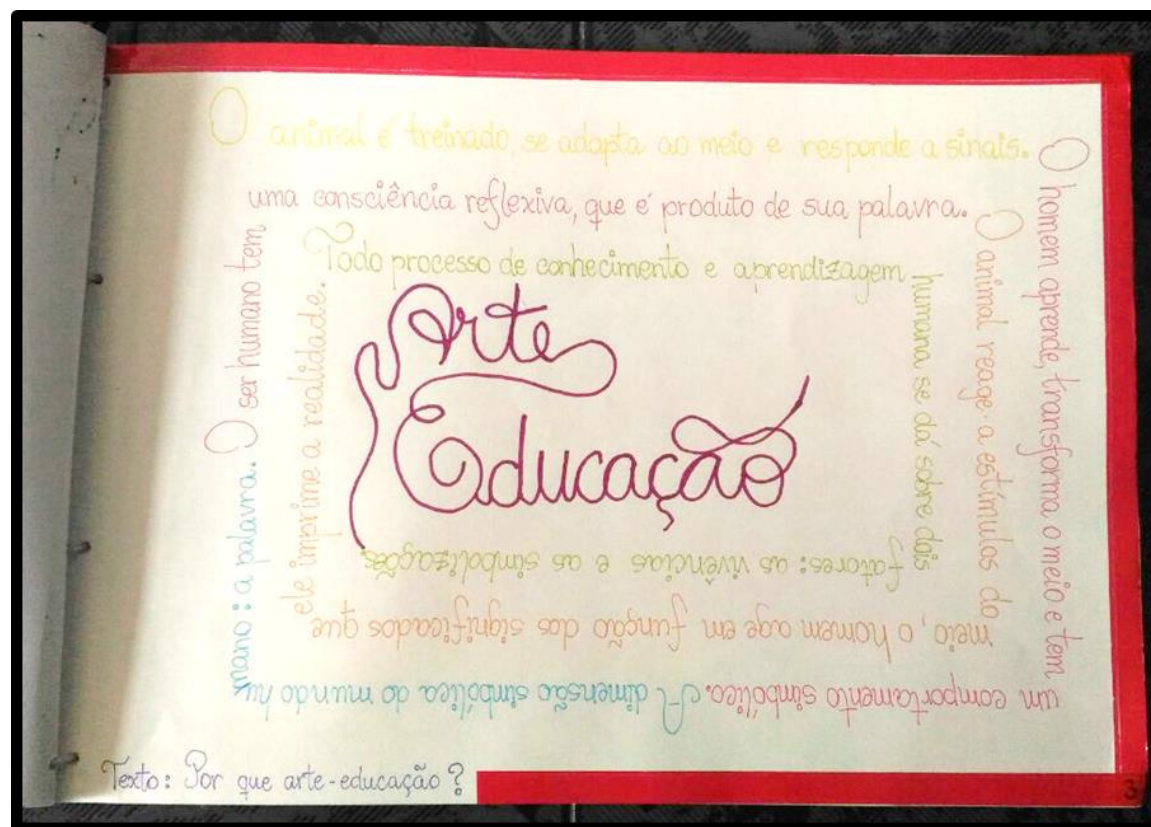 O animal é treinado, se adapta ao meio e responde a sinais.
O homem aprende, transforma o meio e tem
um comportamento simbólico. A dimensão simbólica do mundo hu
mano: a palavra. O ser humano tem
uma consciência reflexiva, que é produto de sua palavra.
O animal reage a estímulos do
meio, o homem age em função dos significados que
ele imprime a realidade.
Todo processo de conhecimento e aprendizagem
humana se dá sobre dois
fatores: as vivências e as simbolizações.
Arte
Educação
Texto: Por que arte-educação?
3